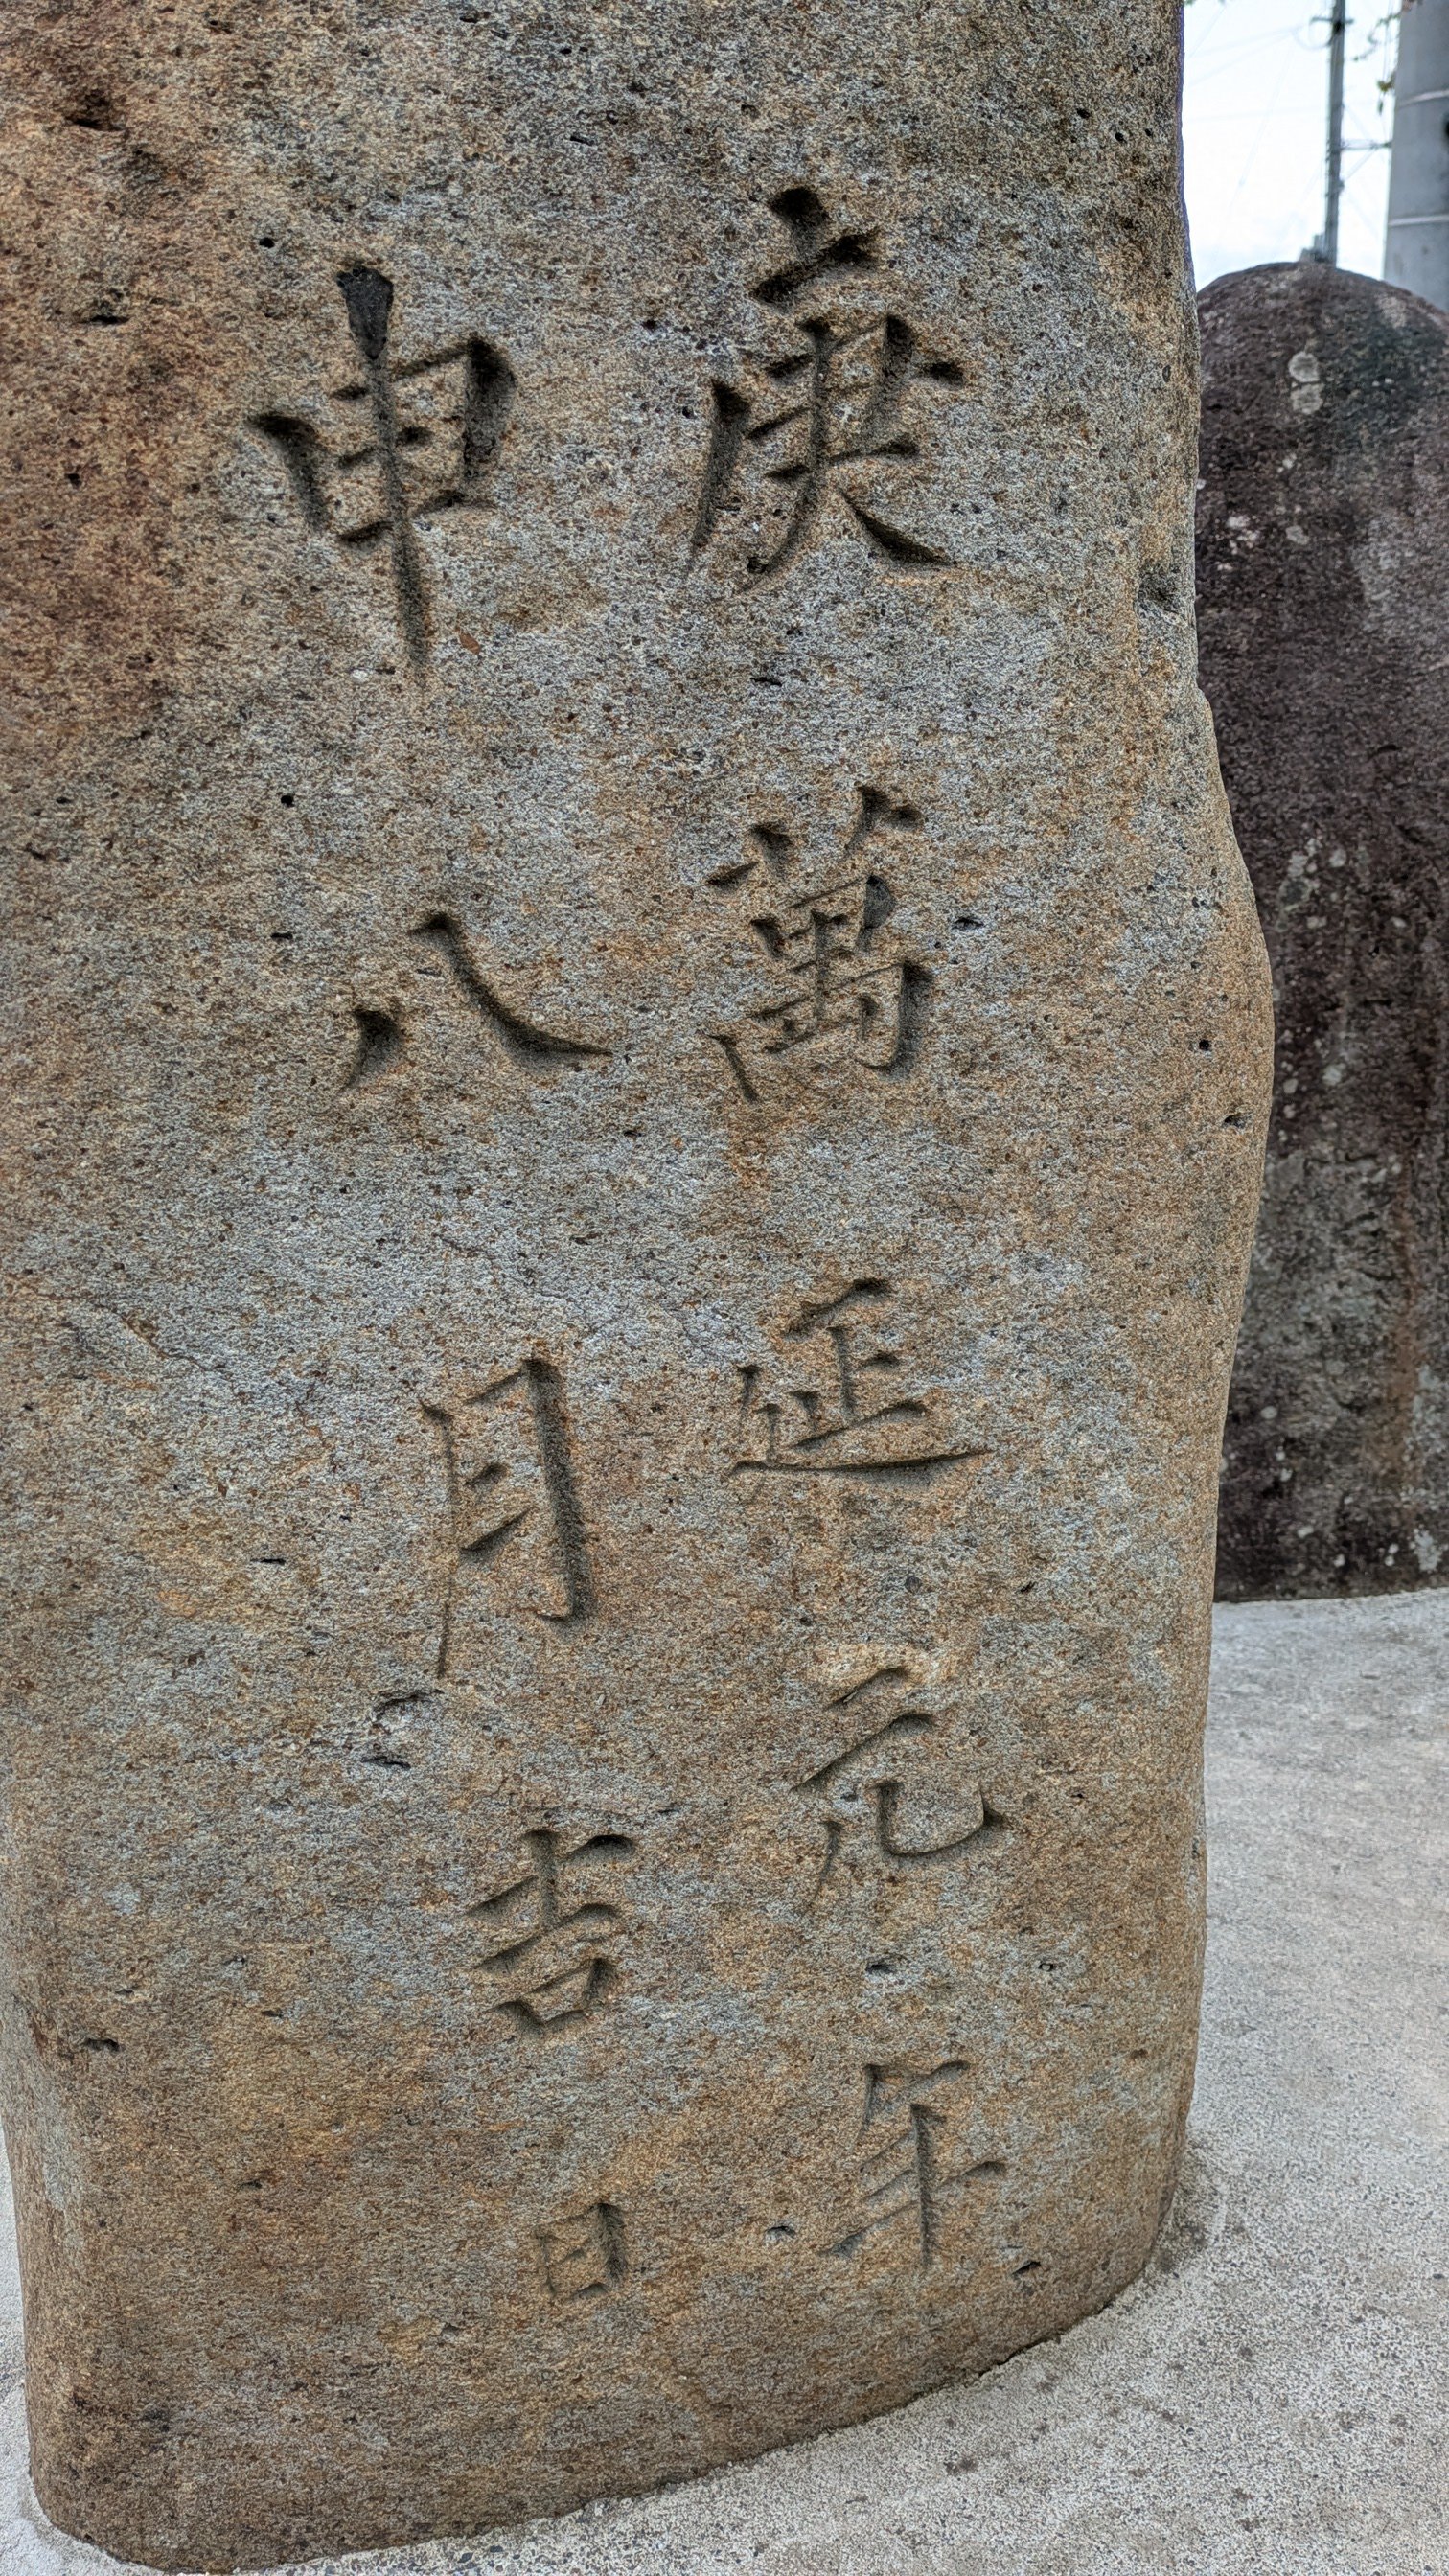 庚萬延元年
申八月吉日